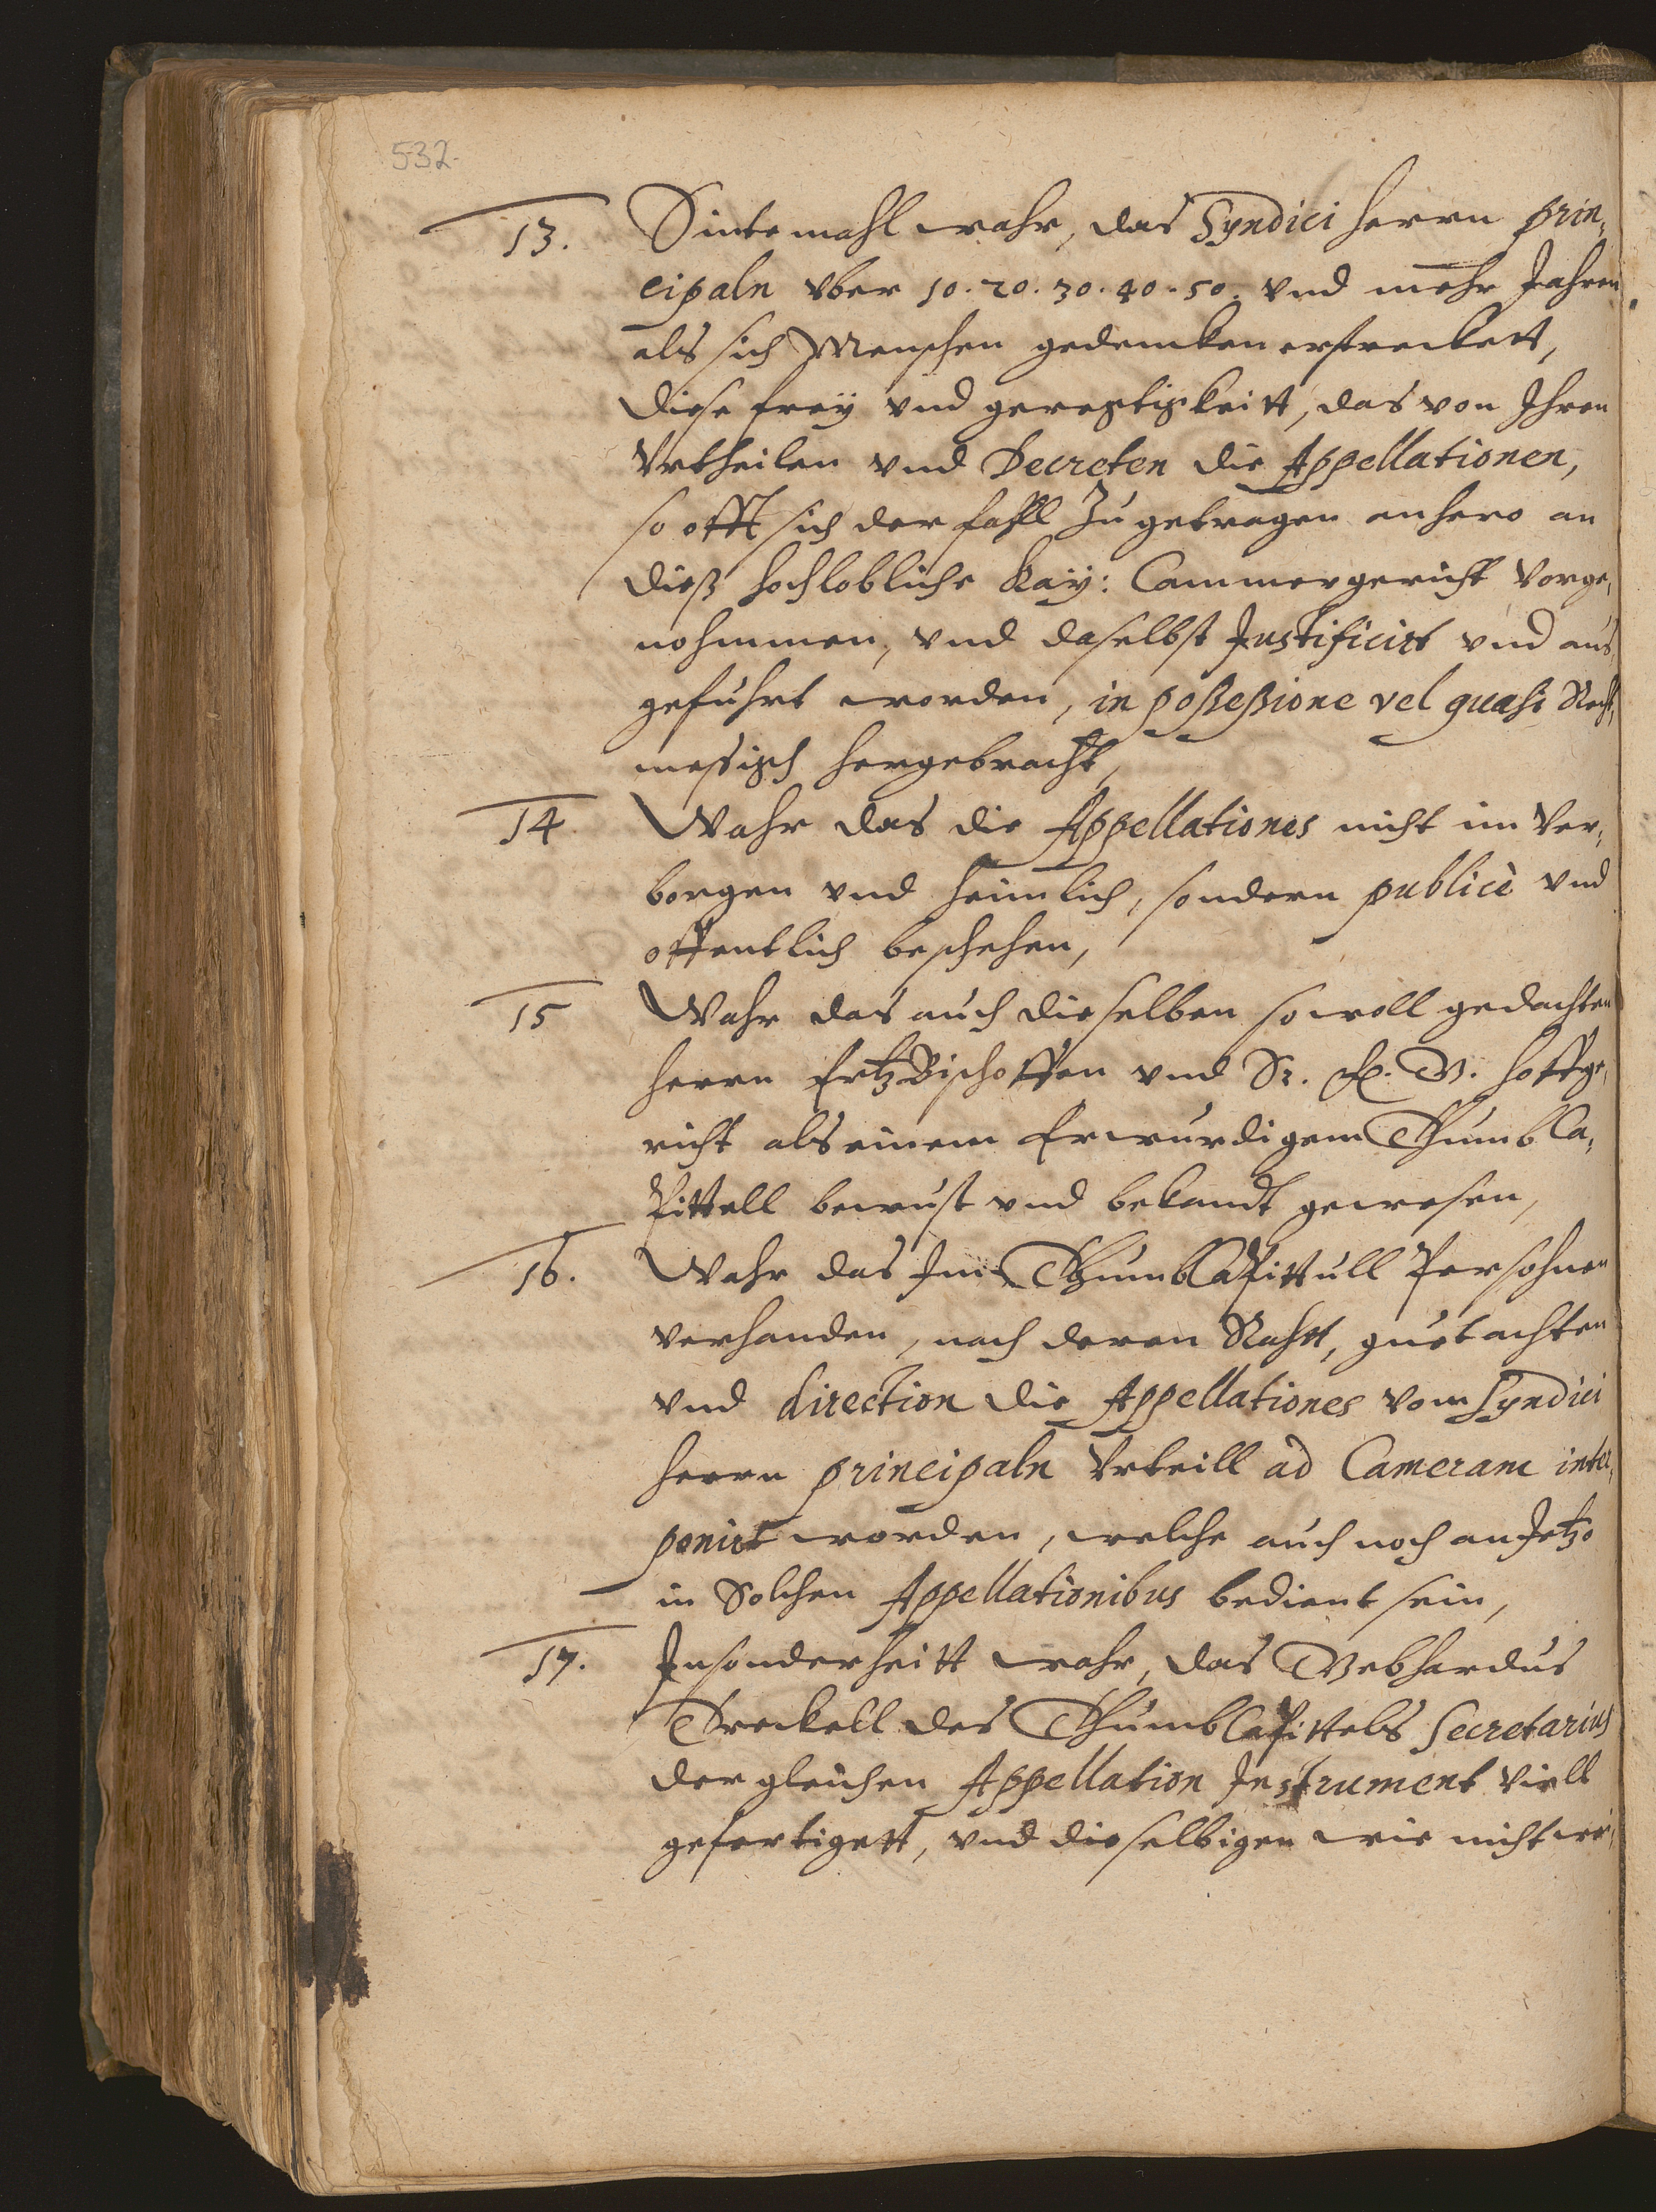 532.
13. Sintemahl wahr, das Syndici herrn prin,
cipaln vber 10. 20. 30. 40. 50. vnd mehr Jahren
als sich Menschen gedencken erstreckett,
diese frey vnd gerechtigkeitt, das von Ihren
Vrtheilen vnd Decreten die Appellationen,
so offt sich der fahll Zugetragen anhero an
dieß hochlobliche Kaÿ: Cammergericht vorge,
nohmmen, vnd daselbst Justificirt vnd aus,
gefuhrt worden, in poßeßione vel quasi Recht,
messigh hergebracht,
14 Wahr das die Appellationes nicht im ver,
borgen vnd heimlich, sondern publicè vnd
offentlich beschehen,
15 Wahr das auch dieselben so woll gedachten
herrn ErtzBischoffen vnd Sr. hoffge,
richt als einem Erwurdigem ThumbCa,
Pittell bewust vnd bekandt gewesen,
16. Wahr das Im ThumbCaPittull Persohnen
verhanden, nach deren Rahtt, guetachten
vnd direction die Appellationes vom Syndici
herrn principaln Vrteill ad Cameram inter,
ponirt worden, welche auch noch anJetzo
in Solchen Appellationibus bedient sein,
17. Insonderheitt wahr, das Gebhardus
Treckell des ThumbCaPittels Secretarius
dergleichen Appellation Instrument viell
gefertigett, vnd dieselbigen wie nicht we,